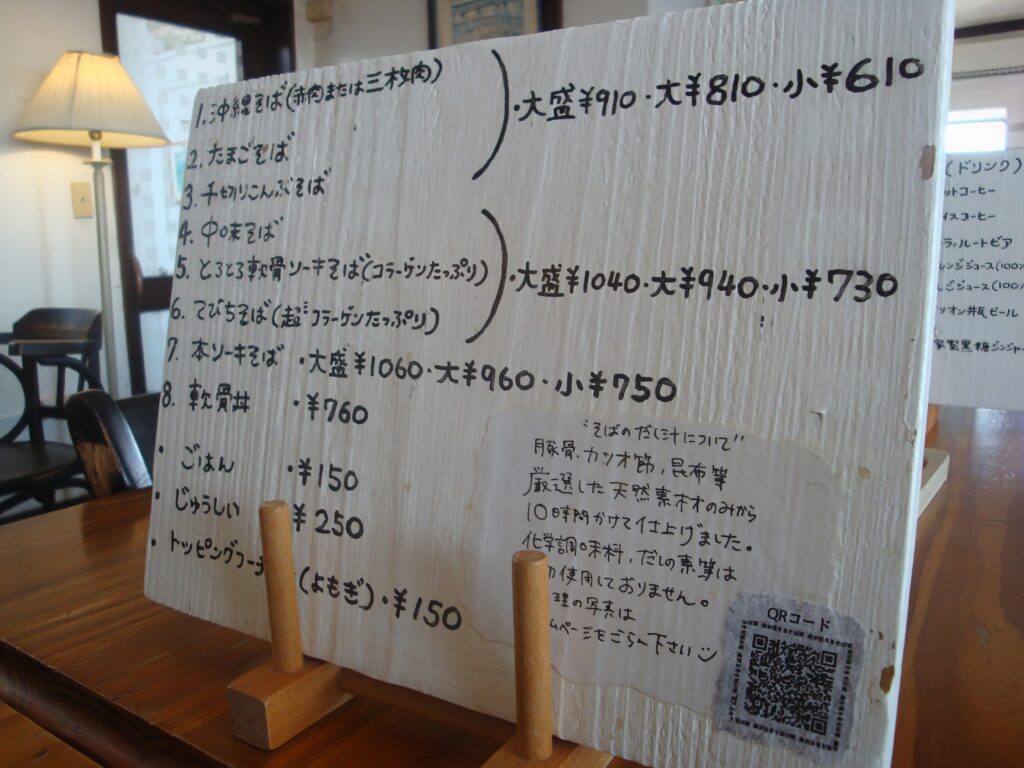 1. 沖縄そば(赤肉または三枚肉)
2. たまごそば
3. 千切りこんぶそば
・大盛¥910・大¥810・小¥610
4. 中味そば
5. とろとろ軟骨ソーキそば(コラーゲンたっぷり)
6. てびちそば(超コラーゲンたっぷり)
・大盛¥1040・大¥940・小¥730
7. 本ソーキそば ・大盛¥1060・大¥960・小¥750
8. 軟骨丼 ・¥760
・ごはん ・¥150
・じゅうしい ¥250
・トッピングフーチ (よもぎ)・¥150
"そばのだし汁について"
豚骨、カツオ節、昆布等
厳選した天然素材のみから
10時間かけて仕上げました。
化学調味料、だしの素等は
使用しておりません。
理の写真は
ムページをごらん下さい
QRコード
(ドリンク)
ットコーヒー
イスコーヒー
ルートビア
レンジジュース(100%
ジュース(100%
オリオン瓶ビール
家製黒糖ジンジャー